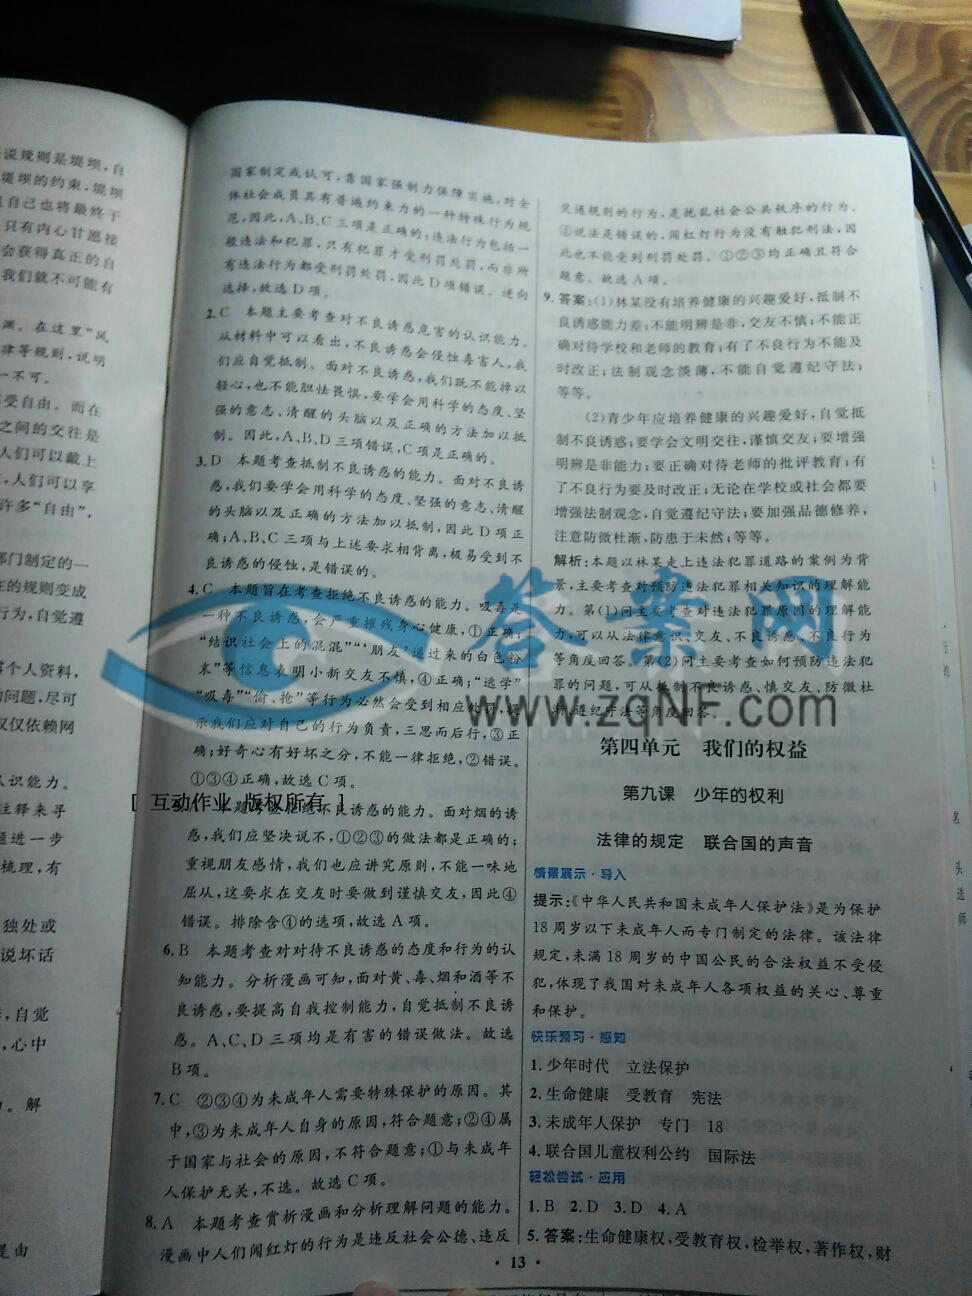 来说规则是堤坝，自
堤坝的约束，堤坝
且自己也将最终于
只有内心甘愿接
会获得真正的自
我们就不可能有
渊。在这里“风
律等规则，说明
一不可。
享受自由。而在
之间的交往是
人们可以戴上
，人们可以享
许多“自由”，
部门制定的一
在的规则变成
行为，自觉遵
露个人资料，
的问题，尽可
仅仅依赖网
认识能力。
注释来寻
题进一步
梳理，有
独处或
说坏话
，自觉
，心中
。解
是由
国家制定或认可，靠国家强制力保障实施，对全
体社会成员具有普遍约束力的一种特殊行为规
范，因此，A、B、C三项是正确的；违法行为包括一
般违法和犯罪，只有犯罪才受刑罚处罚，而非所
有违法行为都受刑罚处罚，因此D项错误。逆向
选择，故选D项。
2.C 本题主要考查对不良诱惑危害的认识能力。
从材料中可以看出，不良诱惑会侵蚀毒害人，我
们应自觉抵制。面对不良诱惑，我们既不能掉以
轻心，也不能胆怯畏惧，要学会用科学的态度、坚
强的意志、清醒的头脑以及正确的方法加以抵
制。因此，A、B、D三项错误，C项是正确的。
3.D 本题考查抵制不良诱惑的能力。面对不良诱
惑，我们要学会用科学的态度、坚强的意志、清醒
的头脑以及正确的方法加以抵制，因此D项正
确；A、B、C三项与上述要求相背离，极易受到不
良诱惑的侵蚀，是错误的。
4.C 本题旨在考查拒绝不良诱惑的能力。吸毒是
一种不良诱惑，会严重摧残身心健康，①正确；
“结识社会上的混混”“‘朋友’递过来的白色粉
末”等信息表明小新交友不慎，④正确；“逃学”
“吸毒”“偷、抢”等行为必然会受到相应处罚，提
示我们应对自己的行为负责，三思而后行，③正
确；好奇心有好坏之分，不能一律拒绝，②错误。
①③④正确，故选C项。
本题考查拒绝不良诱惑的能力。面对烟的诱
惑，我们应坚决说不，①②③的做法都是正确的；
重视朋友感情，我们也应讲究原则，不能一味地
屈从，这要求在交友时要做到谨慎交友，因此④
错误。排除含④的选项，故选A项。
6.B 本题考查对对待不良诱惑的态度和行为的认
知能力。分析漫画可知，面对黄、毒、烟和酒等不
良诱惑，要提高自我控制能力，自觉抵制不良诱
惑。A、C、D三项均是有害的错误做法。故选
B项。
7.C ②③④为未成年人需要特殊保护的原因。其
中，③为未成年人自身的原因，符合题意；②④属
于国家与社会的原因，不符合题意；①与未成年
人保护无关，不选。故选C项。
8.A 本题考查赏析漫画和分析理解问题的能力。
漫画中人们闯红灯的行为是违反社会公德、违反
交通规则的行为，是扰乱社会公共秩序的行为。
④说法是错误的，闯红灯行为没有触犯刑法，因
此也不能受到刑罚处罚。①②③均正确且符合
题意。故选A项。
9.答案：(1)林某没有培养健康的兴趣爱好，抵制不
良诱惑能力差；不能明辨是非，交友不慎；不能正
确对待学校和老师的教育；有了不良行为不能及
时改正；法制观念淡薄，不能自觉遵纪守法；
等等。
(2)青少年应培养健康的兴趣爱好，自觉抵
制不良诱惑；要学会文明交往，谨慎交友；要增强
明辨是非能力；要正确对待老师的批评教育；有
了不良行为要及时改正；无论在学校或社会都要
增强法制观念，自觉遵纪守法；要加强品德修养，
注意防微杜渐，防患于未然；等等。
解析：本题以林某走上违法犯罪道路的案例为背
景，主要考查对预防违法犯罪相关知识的理解能
力。第(1)问主要考查对违法犯罪原因的理解能
力，可以从法律意识、交友、不良诱惑、不良行为
等角度回答。第(2)问主要考查如何预防违法犯
罪的问题，可从抵制不良诱惑、慎交友、防微杜
渐、遵纪守法等角度回答。
第四单元 我们的权益
第九课 少年的权利
法律的规定 联合国的声音
情景展示·导入
提示：《中华人民共和国未成年人保护法》是为保护
18周岁以下未成年人而专门制定的法律。该法律
规定，未满18周岁的中国公民的合法权益不受侵
犯，体现了我国对未成年人各项权益的关心、尊重
和保护。
快乐预习·感知
1.少年时代 立法保护
2.生命健康 受教育 宪法
3.未成年人保护 专门 18
4.联合国儿童权利公约 国际法
轻松尝试·应用
1.B 2.D 3.D 4.A
5.答案：生命健康权，受教育权，检举权，著作权，财
· 13 ·
答案网
www.zqnf.com
[ 互动作业 版权所有 ]